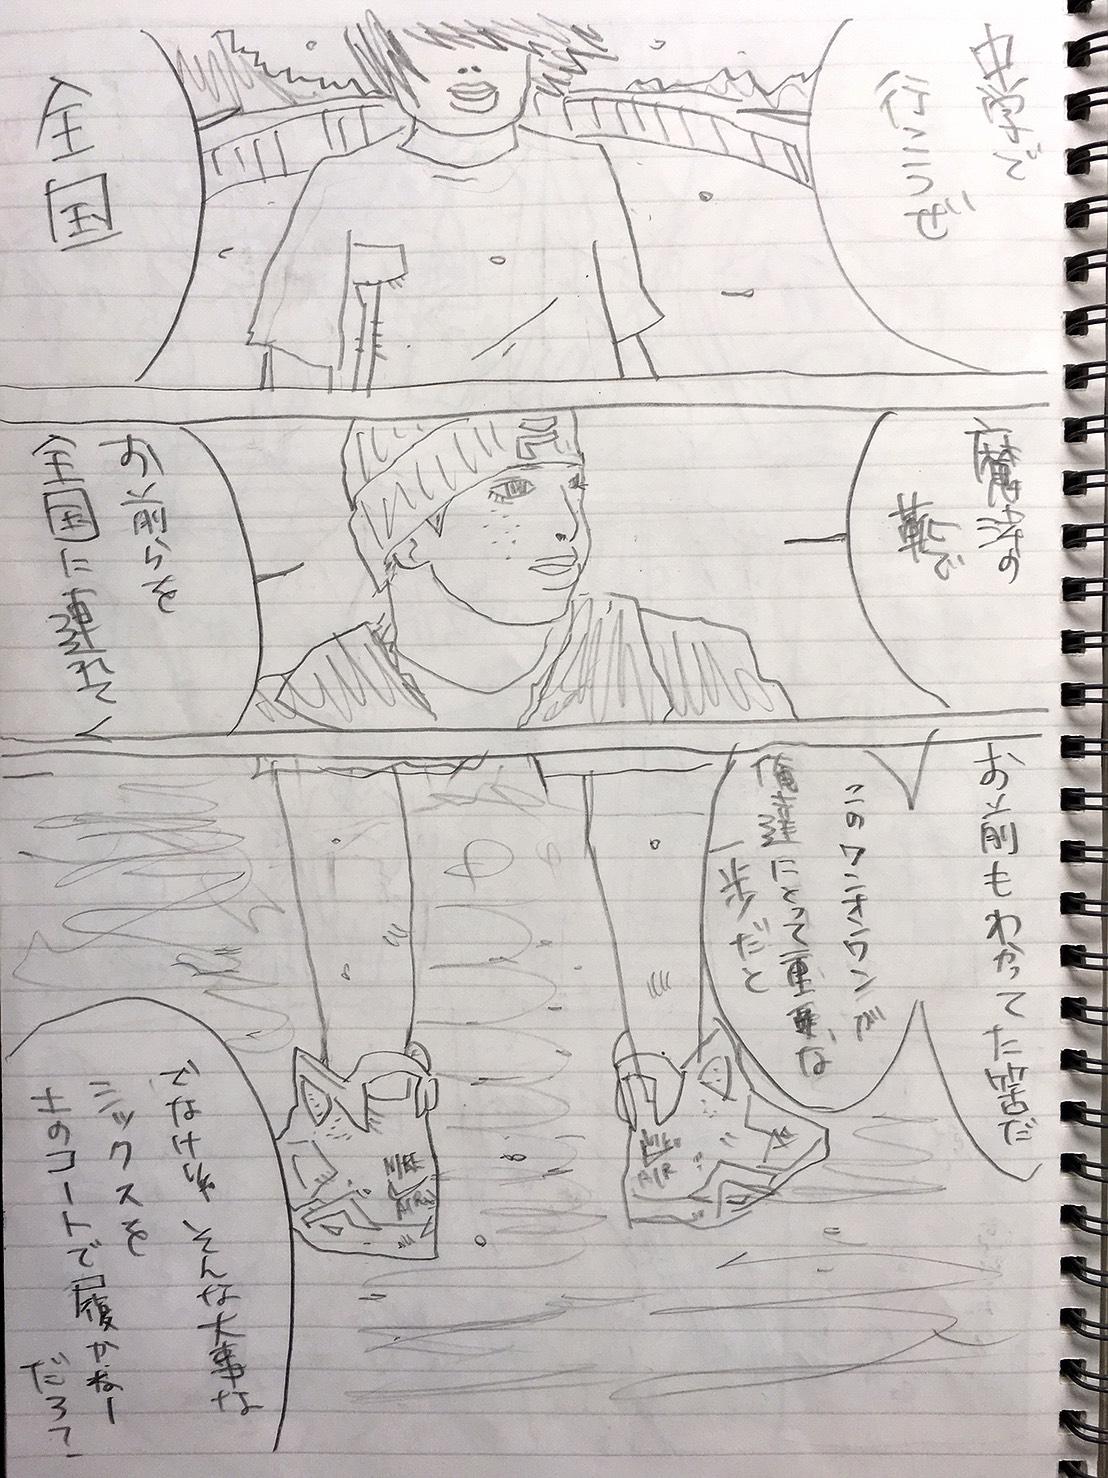 中学で
行こうぜ
全国
お前らを
全国に連れてく
お前もわかってた筈だ
このワンオンワンが
俺達にとって重要な
一歩だと
でなけりゃ、そんな大事な
シックスを
土のコートで履かねー
だろ?
NIKE
AIR
NIKE
AIR